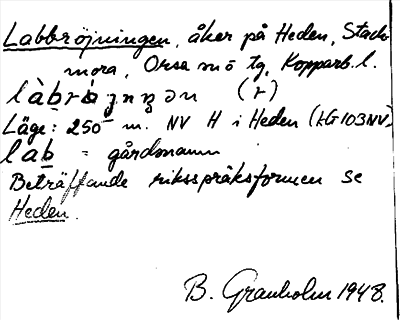 Labbröjningen, åker på Heden, Stack-
mora, Orsa sn ö tg, Kopparb. l.
(r)
Läge: 250 m. NV H i Heden (LG103NV)
lab = gårdsnamn
Beträffande riksspråksformen se
Heden.
B. Granholm 1948.